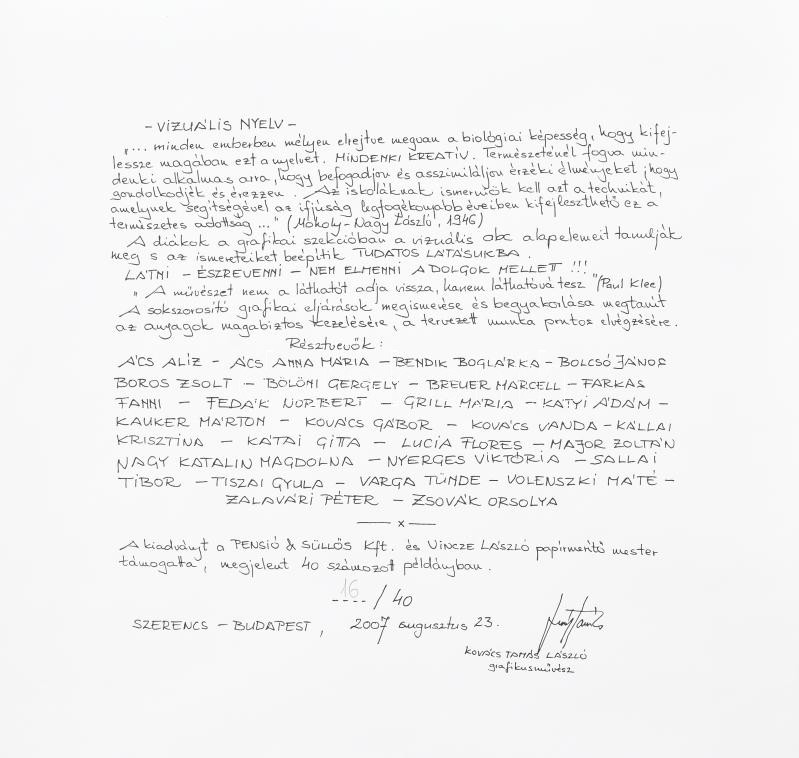 - VIZUÁLIS NYELV -
"... minden emberben mélyen elrejtve megvan a biológiai képesség, hogy kifej-
lessze magában ezt a nyelvet. MINDENKI KREATÍV. Természeténél fogva min-
denki alkalmas arra, hogy befogadjon és asszimiláljon érzéki élményeket, hogy
gondolkodjék és érezzen. Az iskoláknak ismerniök kell azt a technikát,
amelynek segítségével az ifjúság legfogékonyabb éveiben kifejleszthető ez a
természetes adottság ..." (Moholy-Nagy László, 1946)
A diákok a grafikai szekcióban a vizuális abc alapelemeit tanulják
meg s az ismereteiket beépítik TUDATOS LÁTÁSUKBA.
LÁTNI - ÉSZREVENNI - NEM ELMENNI A DOLGOK MELLETT !!!
"A művészet nem a láthatót adja vissza, hanem láthatóvá tesz" (Paul Klee)
A sokszorosító grafikai eljárások megismerése és begyakorlása megtanít
az anyagok magabiztos kezelésére, a tervezett munka pontos elvégzésére.
Résztvevők:
ÁCS ALÍZ - ÁCS ANNA MÁRIA - BENDIK BOGLÁRKA - BOLCSÓ JÁNOS
BOROS ZSOLT - BÖLÖNI GERGELY - BREUER MARCELL - FARKAS
FANNI - FEDÁK NORBERT - GRILL MÁRIA - KATYI ÁDÁM -
KAUKER MÁRTON - KOVÁCS GÁBOR - KOVÁCS VANDA - KÁLLAI
KRISZTINA - KÁTAI GITTA - LUCIA FLORES - MAJOR ZOLTÁN
NAGY KATALIN MAGDOLNA - NYERGES VIKTÓRIA - SALLAI
TIBOR - TISZAI GYULA - VARGA TÜNDE - VOLENSZKI MÁTÉ -
ZALAVÁRI PÉTER - ZSOVÁK ORSOLYA
— x —
A kiadványt a PENSIÓ & SÜLLŐS Kft. és VINCZE LÁSZLÓ papírmerítő mester
támogatta, megjelent 40 számozott példányban.
16 / 40
SZERENCS - BUDAPEST, 2007 augusztus 23.
KOVÁCS TAMÁS LÁSZLÓ
grafikusművész